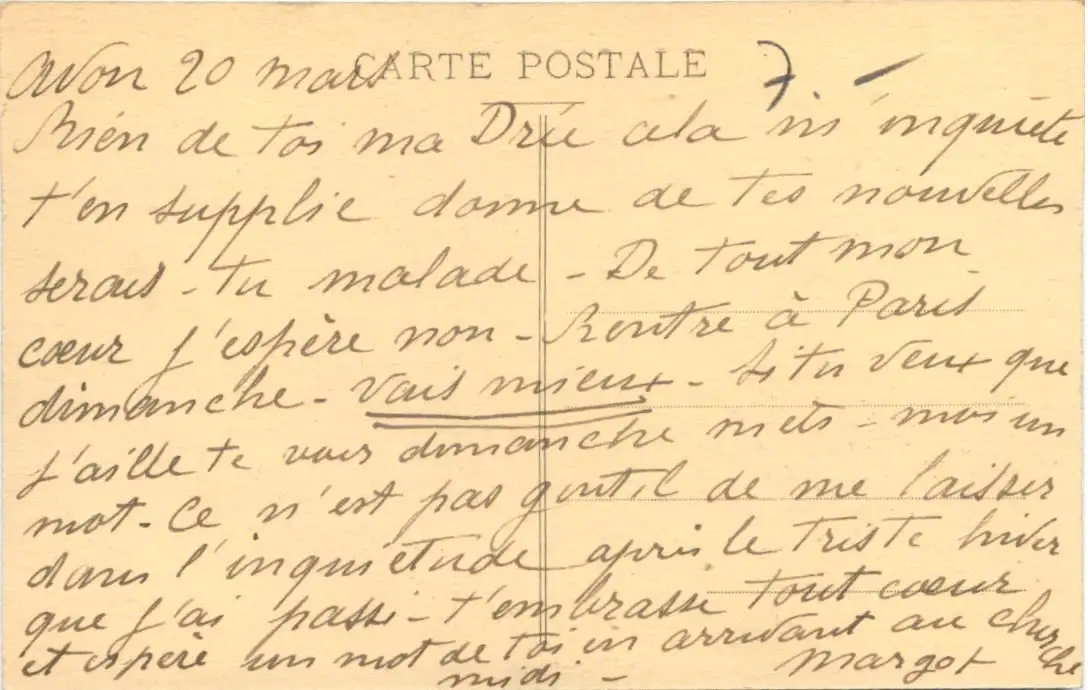 CARTE POSTALE
Avon 20 mars 7.
Rien de toi ma Drée cela m'inquiète
t'en supplie donne de tes nouvelles
serais-tu malade - De tout mon
cœur j'espère non - Rentre à Paris
dimanche - Vais mieux - Si tu veux que
j'aille te voir dimanche mets-moi un
mot - Ce n'est pas gentil de me laisser
dans l'inquiétude après le triste hiver
que j'ai passé - t'embrasse tout cœur
et espère un mot de toi en arrivant au cherche
midi - Margot